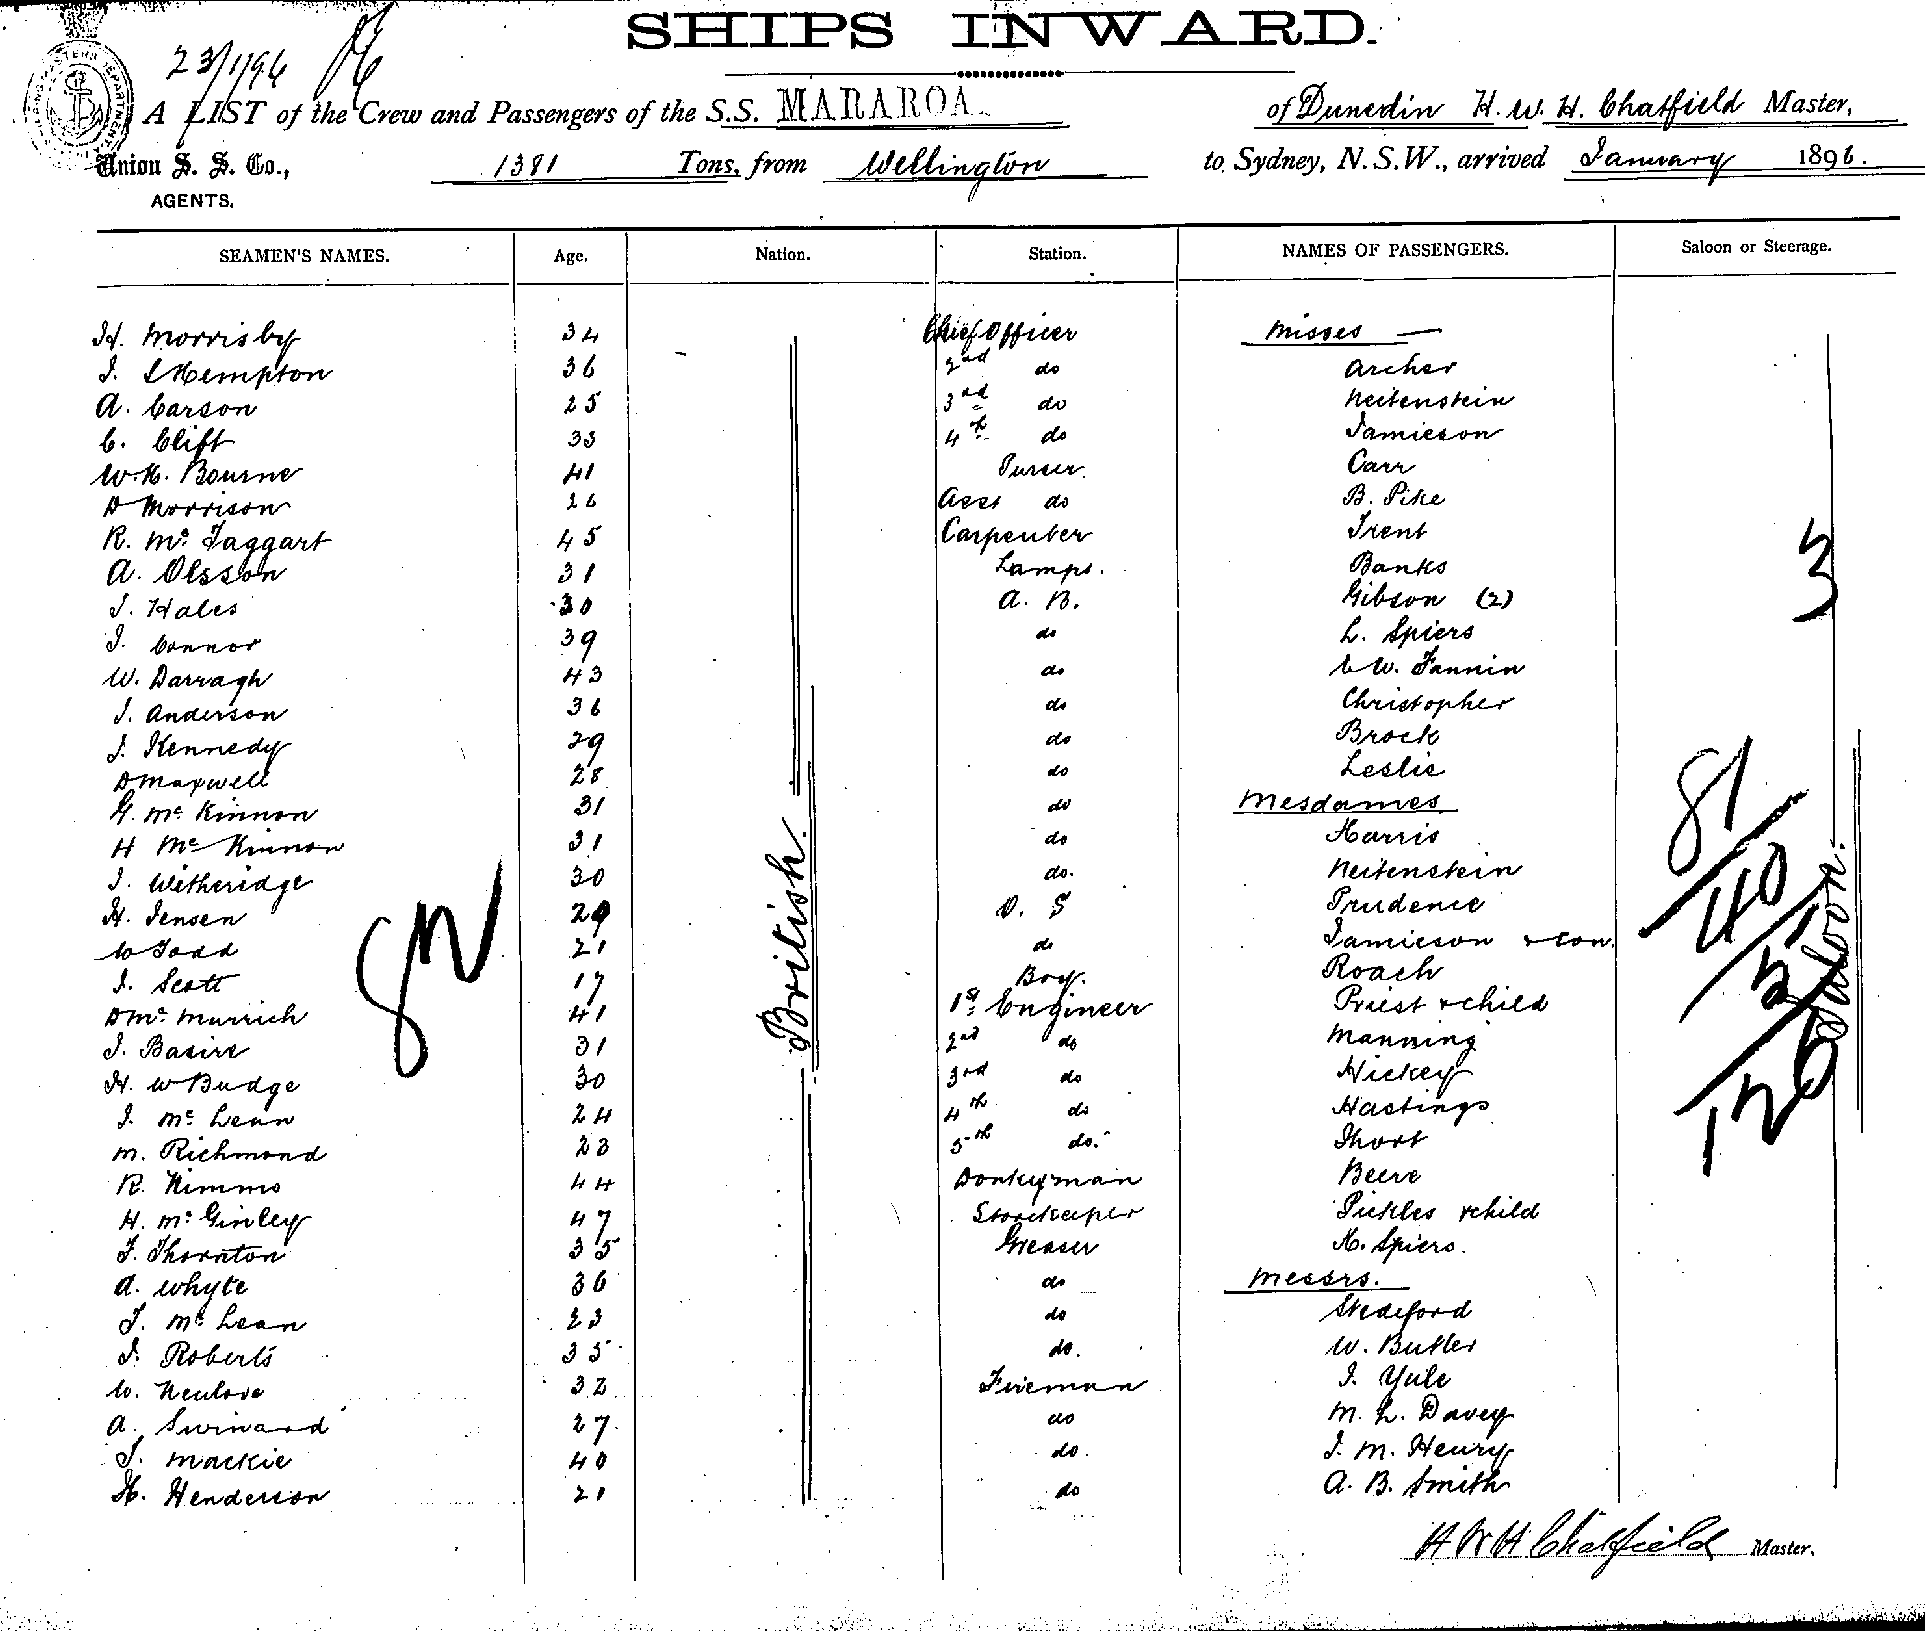 SHIPS INWARD.
23/1/96
A LIST of the Crew and Passengers of the S.S. MARAROA of Dunedin H. W. H. Chatfield Master,
Union S. S. Co., 1381 Tons, from Wellington to Sydney, N.S.W., arrived January 1896.
AGENTS.
SEAMEN'S NAMES. Age. Nation. Station. NAMES OF PASSENGERS. Saloon or Steerage.
H. Morrisby 34 Chief Officer Misses —
J. Kempton 36 2nd do Archer
A. Carson 25 3rd do Neitenstein
C. Clift 33 4th do Jamieson
W. H. Bourne 41 Purser. Carr
D Morrison 26 Asst do B. Pike
R. Mc Taggart 45 Carpenter Trent
A. Olsson 31 Lamps. Banks
J. Hales 30 A. B. Gibson (2)
J. Connor 39 do L. Spiers
W. Darragh 43 do C W. Fannin
J. Anderson 36 do Christopher
J. Kennedy 29 do Brock
D Maxwell 28 do Leslie
G. Mc Kinnon 31 do Mesdames
H Mc Kinnon 31 do Harris
J. Witheridge 30 do. Neitenstein
H. Jensen 29 O. S Prudence
W Todd 21 do Jamieson & son
J. Scott 17 Boy. Roach
D Mc Murrich 41 1st Engineer Priest & child
J. Basire 31 2nd do Manning
H. W Budge 30 3rd do Hickey
J. Mc Lean 24 4th do Hastings
M. Richmond 23 5th do. Short
R. Nimmo 44 Donkeyman Beere
H. Mc Ginley 47 Storekeeper Pickles & child
F. Thornton 35 Greaser H. Spiers.
A. Whyte 36 do Messrs.
J. Mc Lean 23 do Stedeford
J. Roberts 35 do. W. Butler
W. Neulove 32 Fireman J. Yule
A. Swinard 27 do M. L. Davey
J. Mackie 40 do. J. M. Henry
H. Henderson 21 do A. B. Smith
British.
Saloon.
3
81
40
126
H W H Chatfield Master.